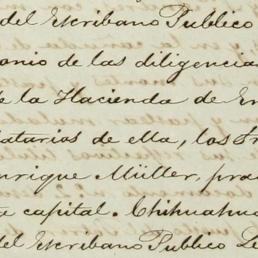 del Escribano Publico
onio de las diligencia
e la Hacienda de En
datarios de ella, los Tr
nrique Müller, pra
a capital. Chihuahua
del Escribano Publico Le